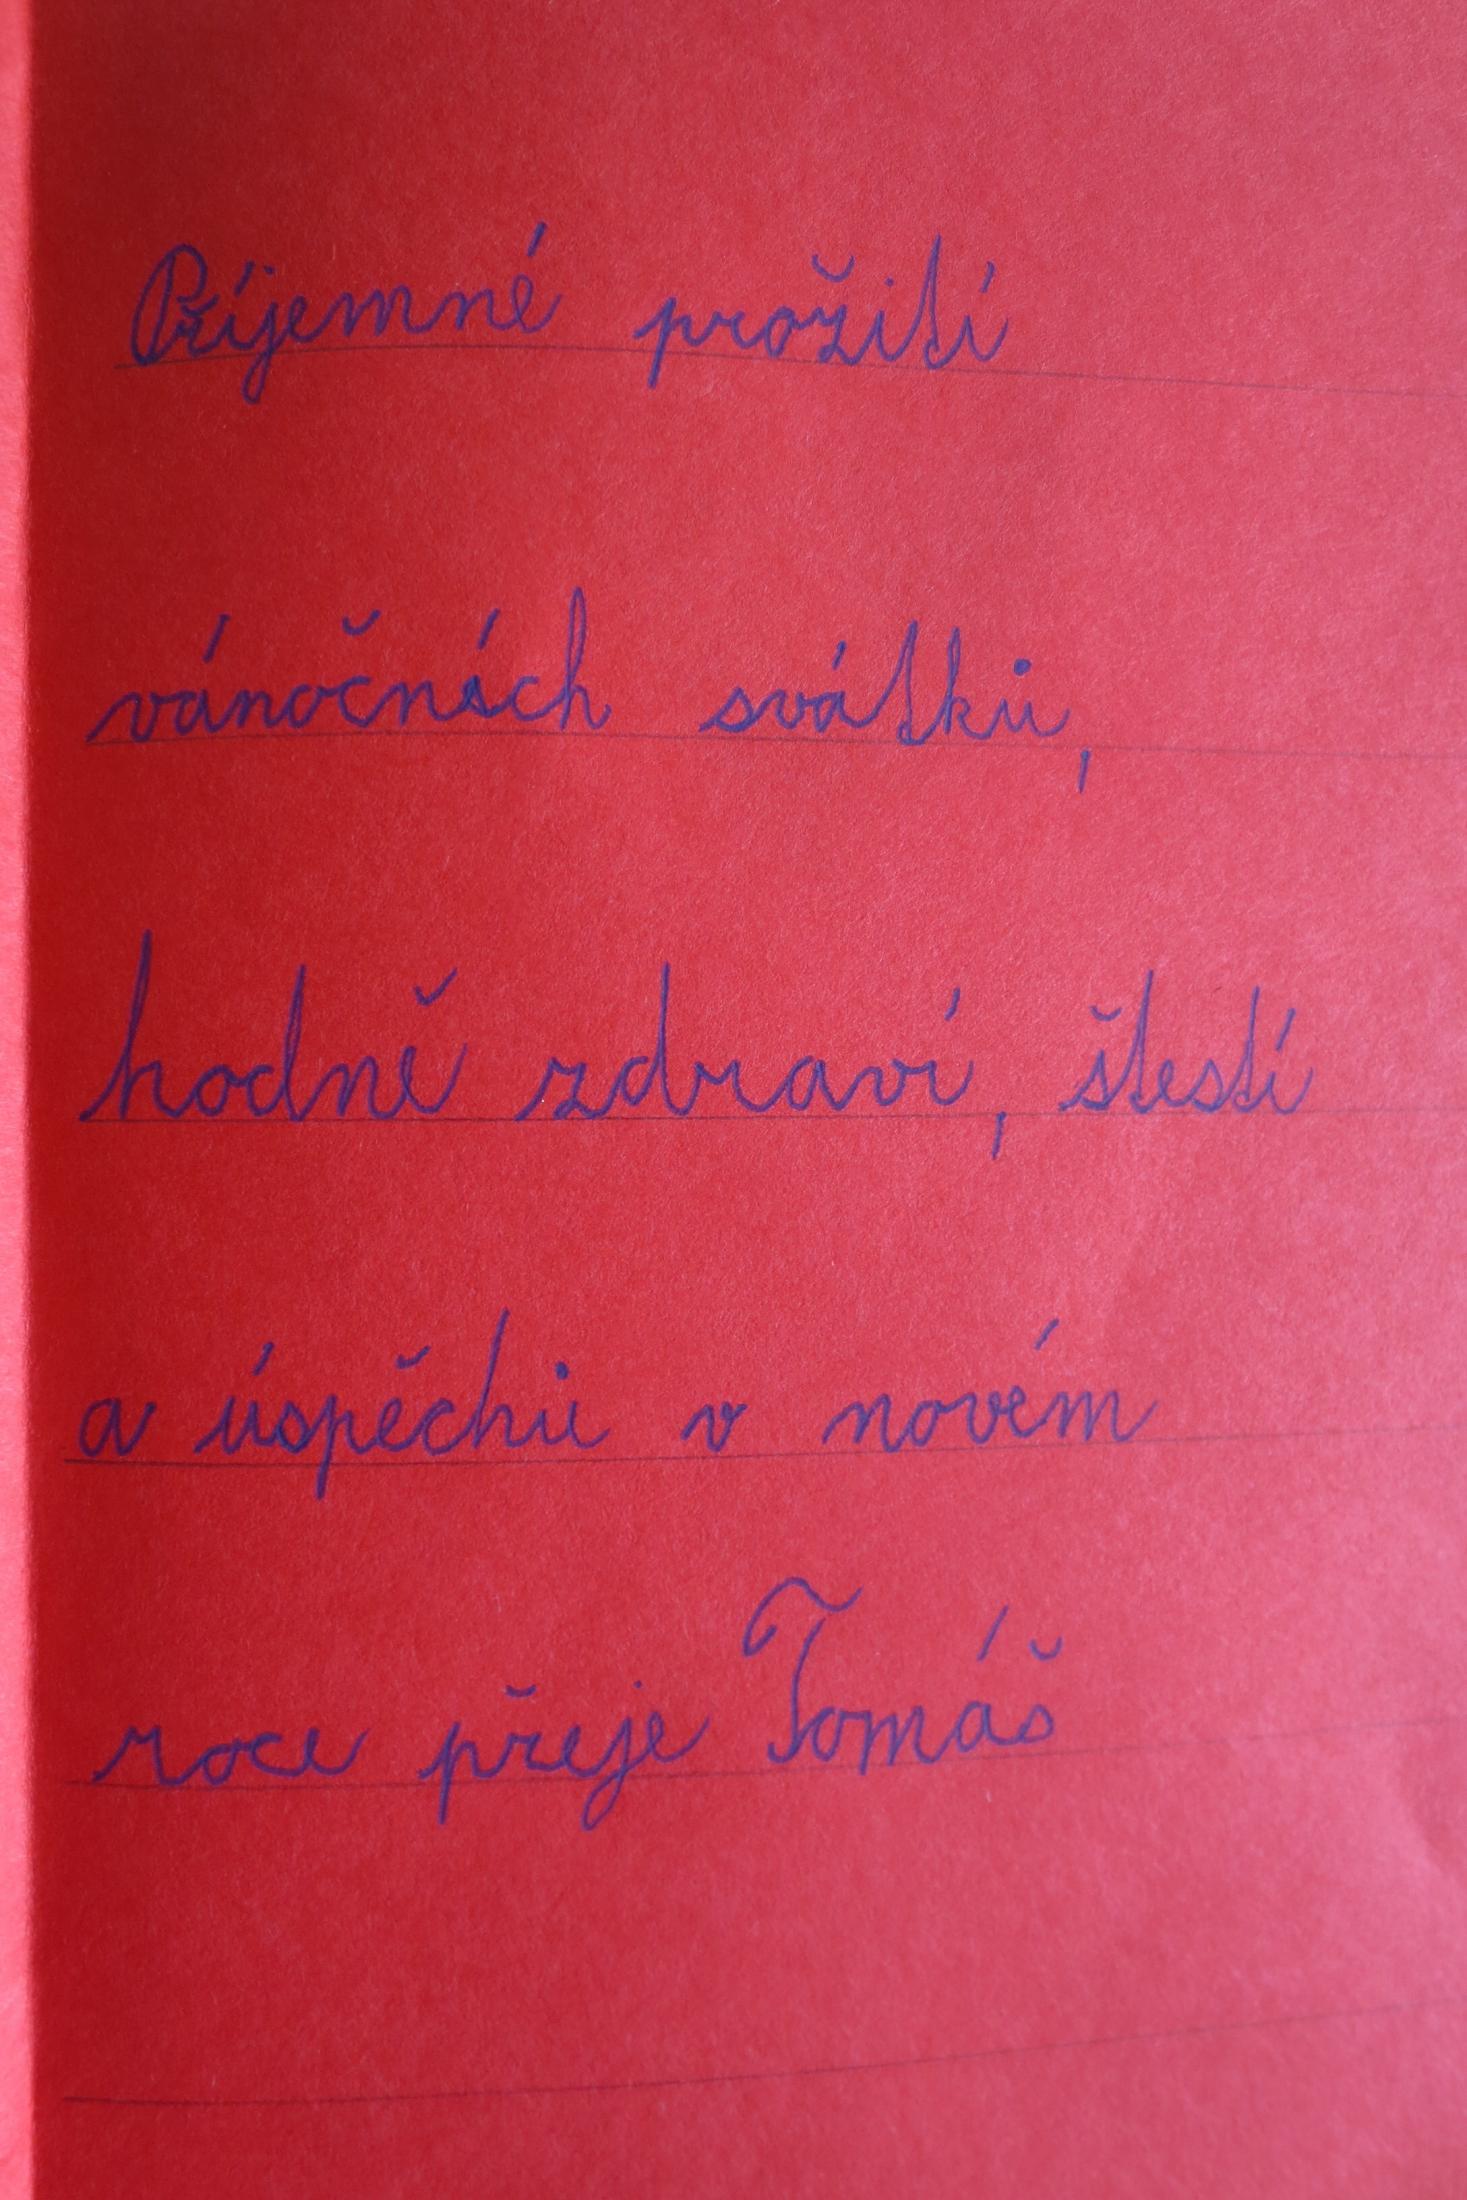 Príjemné prožití
vánočnách svátků,
hodně zdraví, štestí
a úspěchů v novém
roce přeje Tomáš